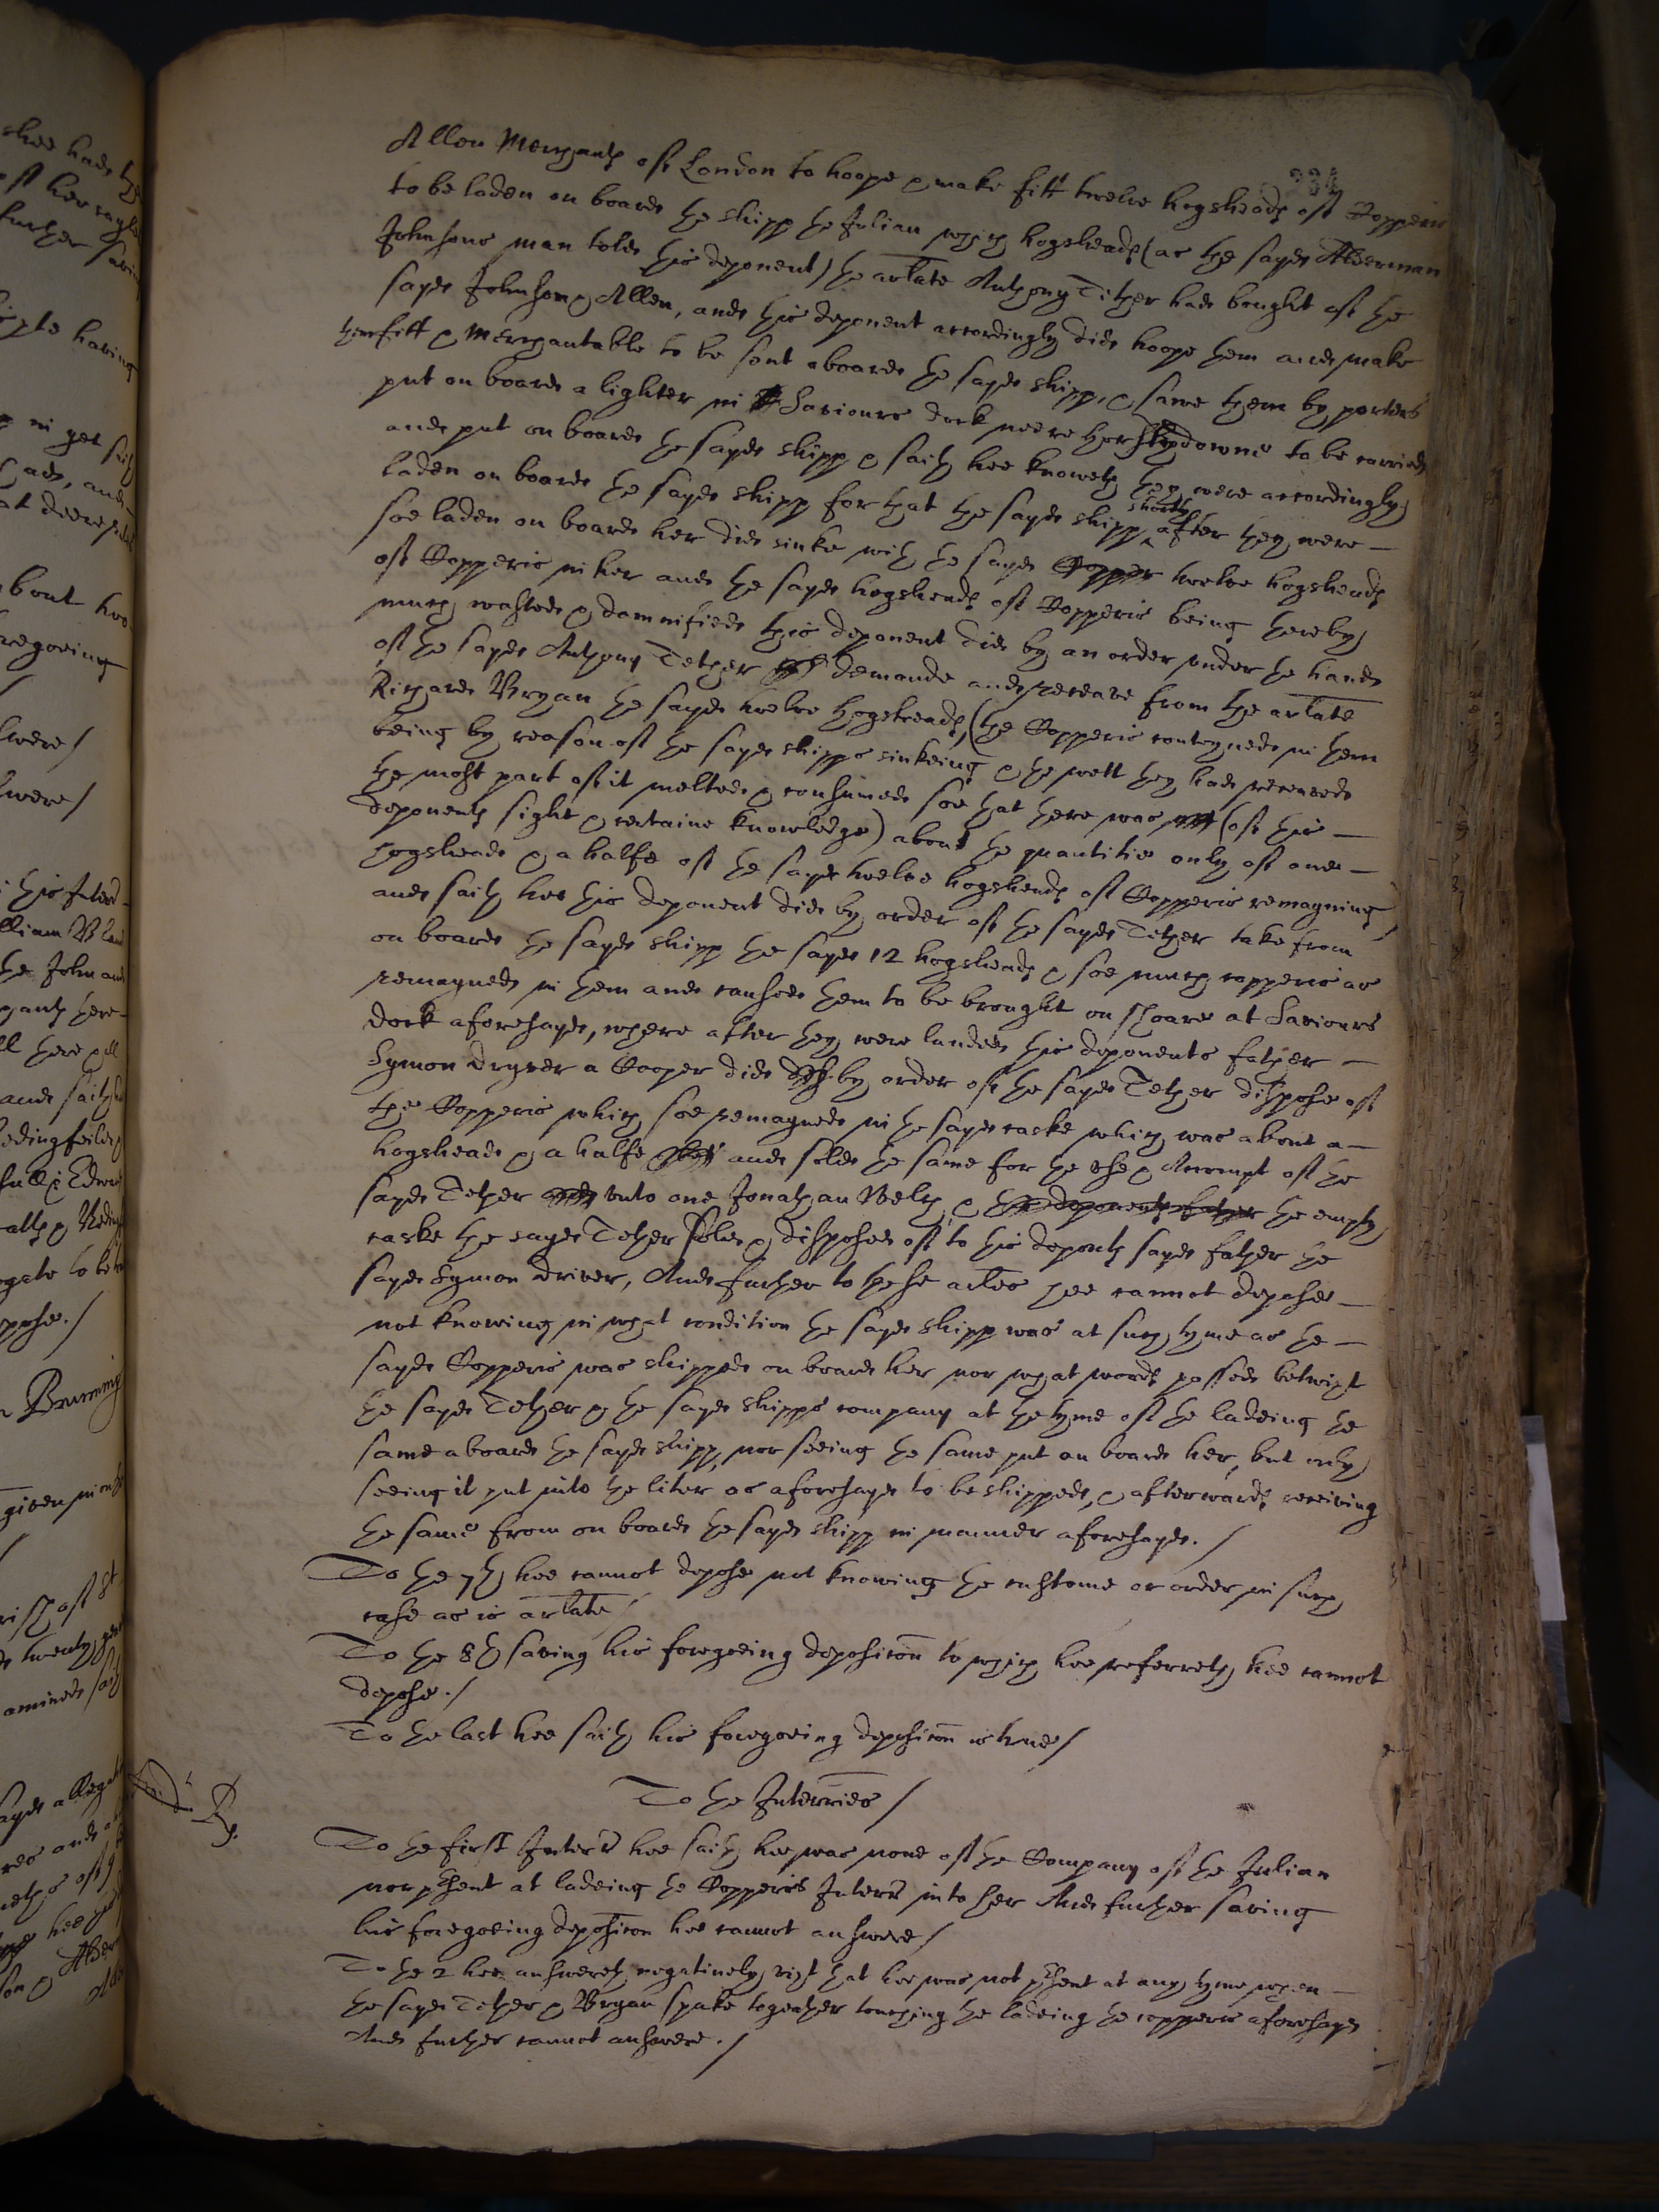 334
Allen Merchants of London to hoope & make fitt twelve hogsheads of Copperis
to be laden on board the shipp the Julian which hogsheads (as the sayd Alderman
Johnsons man told this deponent) the arlate Anthony Tether had bought of the
sayd Johnson & Allen, and this deponent accordingly did hoope them and make
them fitt & merchantable to be sent aboard the sayd shipp, & sawe them by porters
put on board a lighter in St Saviours dock neere Horslydowne to be carried
and put on board the sayd shipp & saith hee knoweth they were accordingly
laden on board the sayd shipp for that the sayd shipp shortly after they were
soe laden on board her did sinke with the sayd Copper twelve hogsheads
of Copperis in her and the sayd hogsheads of Copperis being thereby
much washed & damnified this deponent did by an order under the hand
of the sayd Anthony Tether demande and receave from the arlate
Richard Bryan the sayd twelve hogsheads, (the Copperis conteyned in them
being by reason of the sayd shipps sinkeing & the wett they had receaved
the most part of it melted & consumed soe that there was (of this
deponents sight & certaine knowledge) about the quantitie only of one
hogshead & a halfe of the sayd twelve hogsheads of Copperis remayning
and saith hee this deponent did by order of the sayd Tether take from
on board the sayd shipp the sayd 12 hogsheads & soe much copperis as
remayned in them and caused them to be brought on shoare at Saviours
dock aforesayd, where after they were landed this deponents father
Symon Dryver a Cooper did by order of the sayd Tether dispose of
the Copperis which soe remayned in the sayd caske which was about a
hogshead & a halfe and sold the same for the use & Accompt of the
sayd Tether unto one Jonathan Welch & the deponents father the empty
caske the sayd Tether sold & disposed of to this deponts sayd father the
sayd Symon Driver, And further to these arles hee cannot depose
not knowing in what condition the sayd shipp was at such tyme as the
sayd Copperis was shipped on board her nor what words passed betwixt
the sayd Tether & the sayd shipps company at the tyme of the ladeing the
same aboard the sayd shipp, nor seeing the same put on board her, but only
seeing it put into the liter as aforesayd to be shipped, & afterwards receiving
the same from on board the sayd shipp in manner aforesayd. /
To the 7th hee cannot depose not knowing the custome or order in such
case as is arlate /
To the 8th saving his foregoeing deposicon to which hee referreth hee cannot
depose. /
To the last hee saith his foregoeing deposicon is true /
To the Interries /
To the first Interr hee saith hee was none of the Company of the Julian
nor psent at ladeing the Copperis Interr into her And further saving
his foregoeing deposicon hee cannot answere /
To the 2 hee answereth negatively, vizt that hee was not psent at any tyme when
the sayd Tether & Bryan spake together touching the ladeing the copperis aforesayd
And further cannot answere. /